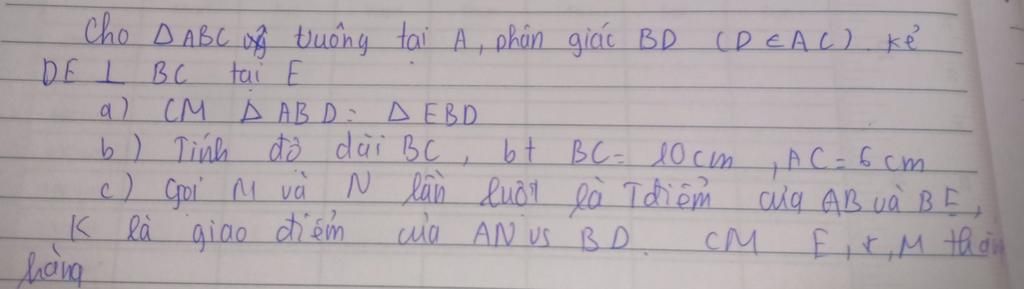 Cho ΔABC vuông tại A, phân giác BD (D ∈ AC). kẻ
DE ⊥ BC tại E
a) CM Δ ABD = Δ EBD
b) Tính độ dài BC, bt BC = 10cm, AC = 6cm
c) Gọi M và N lần lượt là Tđiểm của AB và BE,
K là giao điểm của AN vs BD. CM E, K, M thẳng
hàng